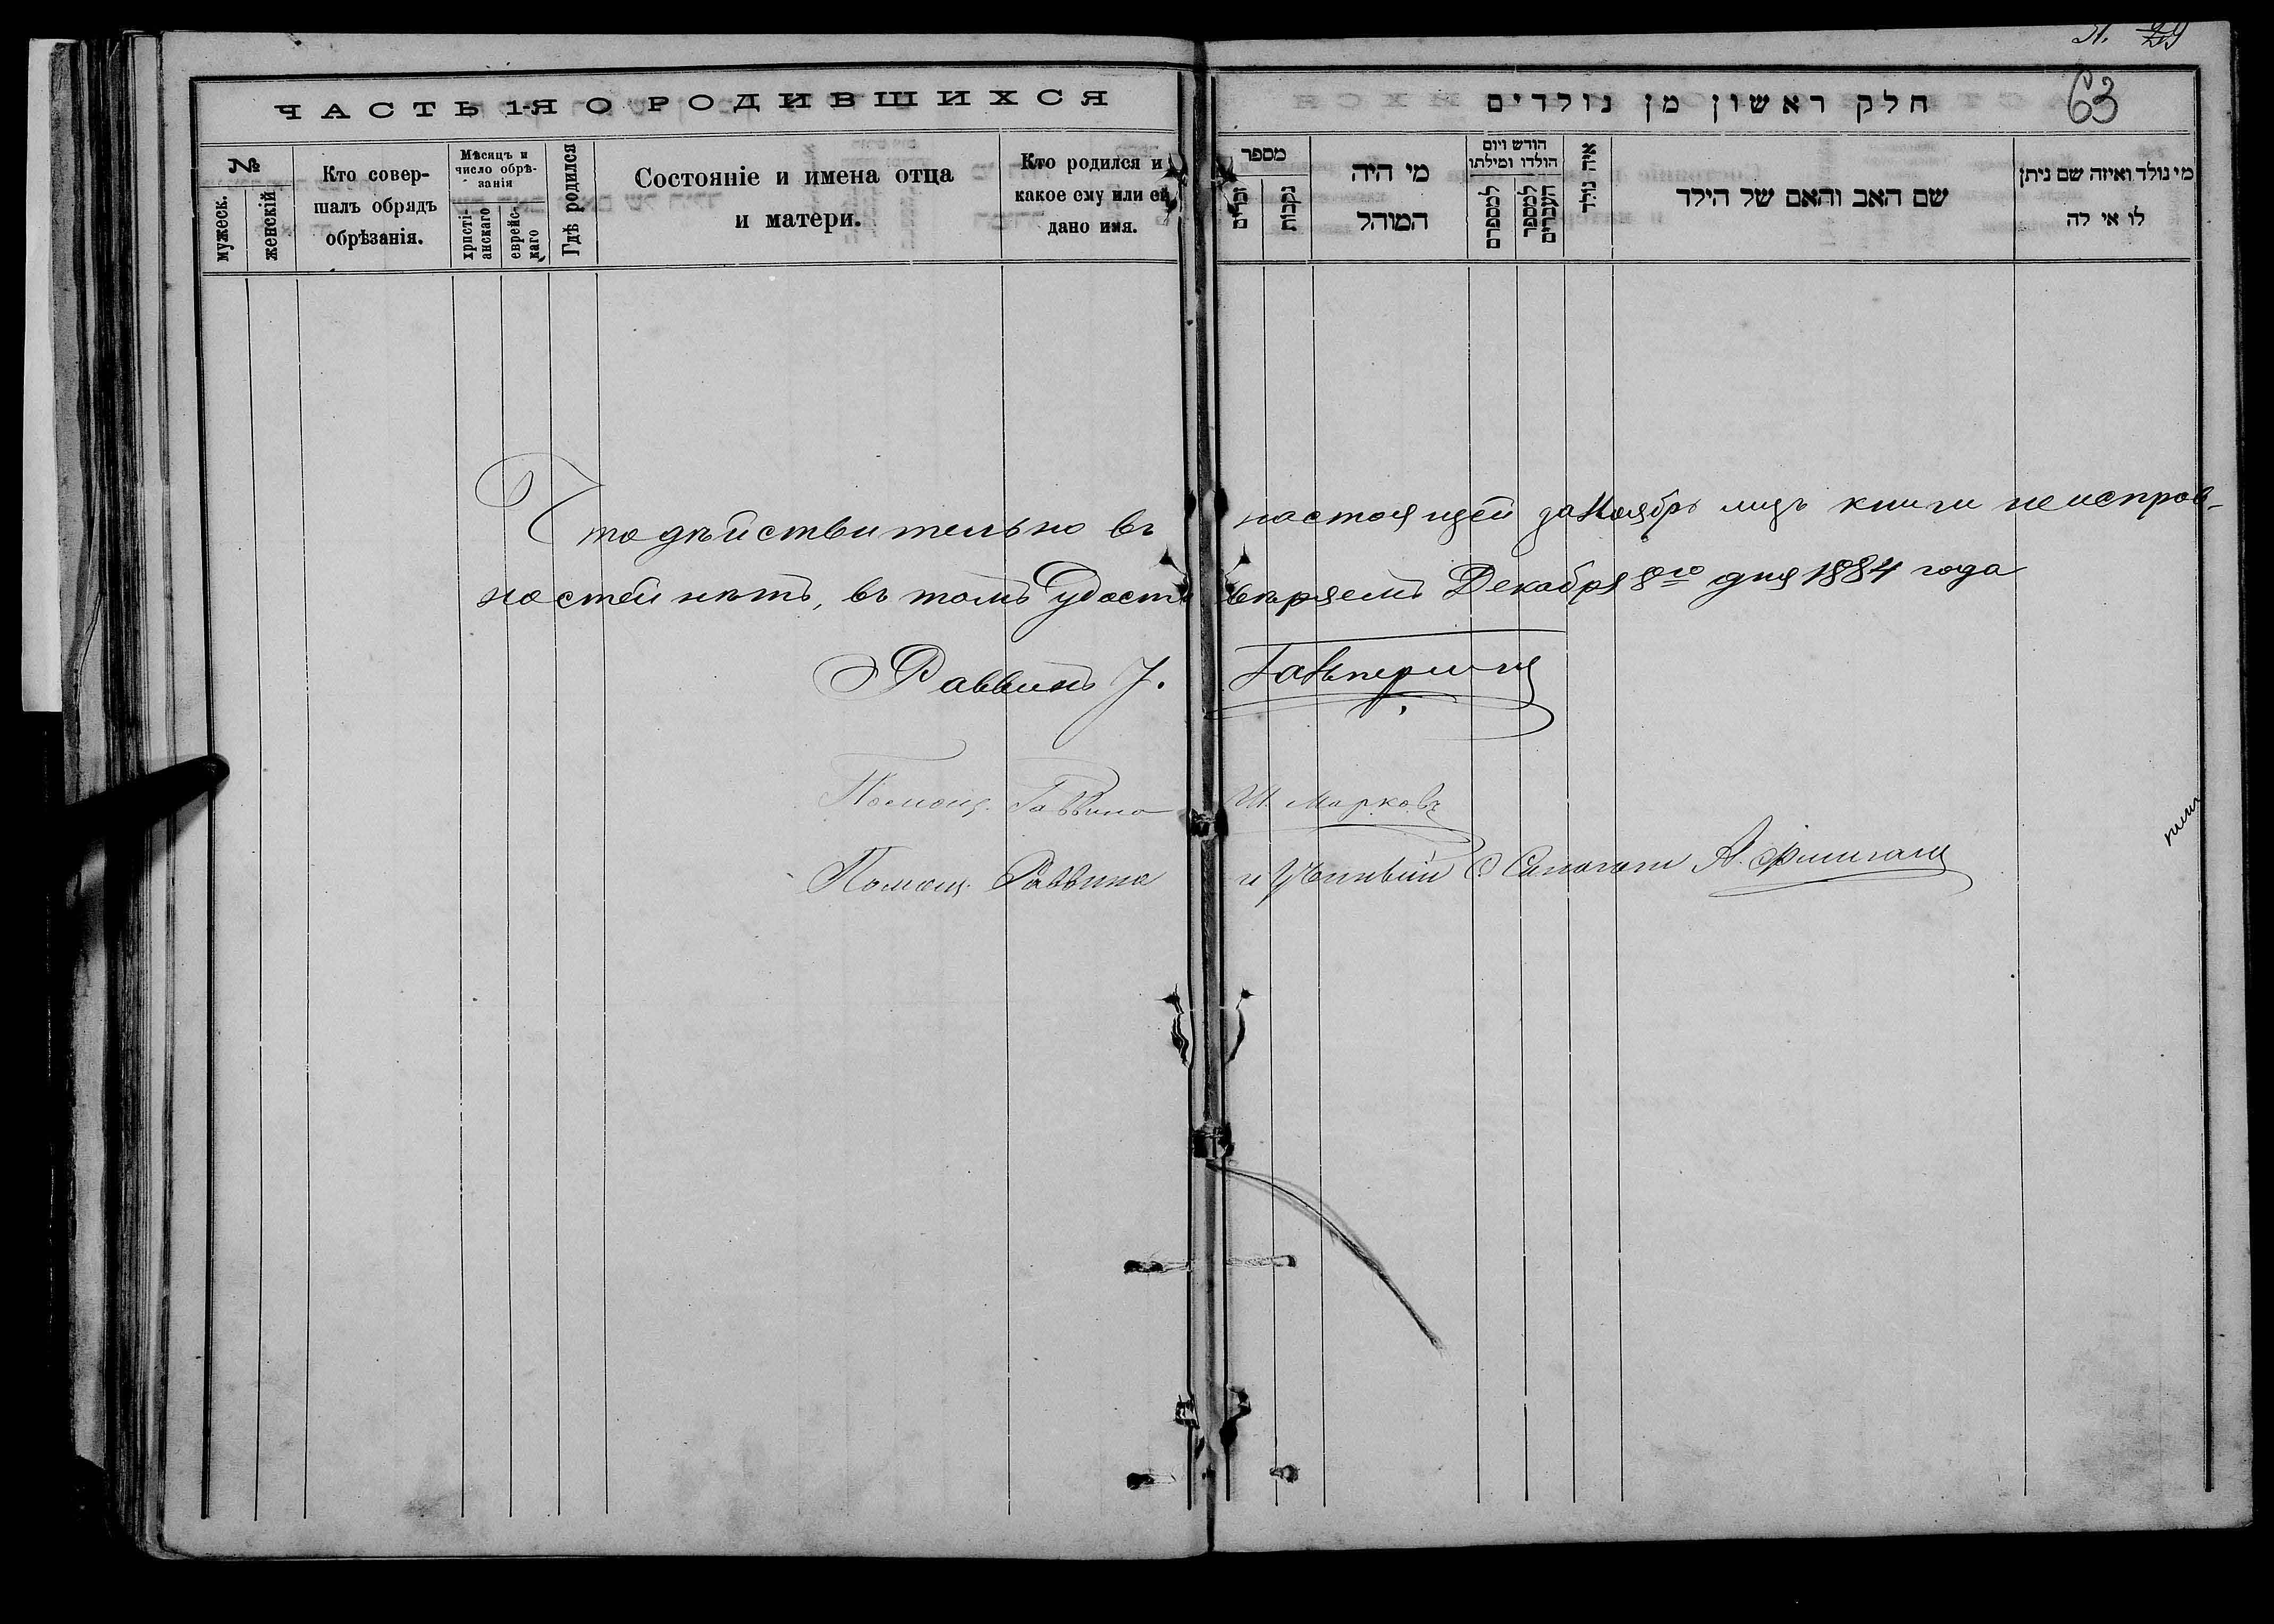 л. 29
63
ЧАСТЬ 1-Я О РОДИВШИХСЯ
№
мужеск.
женскій
Кто совер-
шалъ обрядъ
обрѣзанія.
Мѣсяцъ и
число обрѣ-
занія
христі-
анскаго
еврейс-
каго
Гдѣ родился
Состояніе и имена отца
и матери.
Кто родился и
какое ему или ей
дано имя.
חלק ראשון מן נולדים
מספר
זכרים
נקבות
מי היה
המוהל
חודש ויום
הולדו ומילתו
למספרם
למספר
העברים
איה נולד
שם האב והאם של הילד
מי נולד ואיזה שם ניתן
לו או לה
Что дѣйствительно въ настоящей за Ноябрь мцъ книги неисправ-
ностей нѣтъ, въ томъ удостовѣряемъ Декабря 8го дня 1884 года
Раввинъ І. Гальперинъ
Помощ. Раввина Ш. Марковъ
Помощ. Раввина и Ученый С Синагоги А.